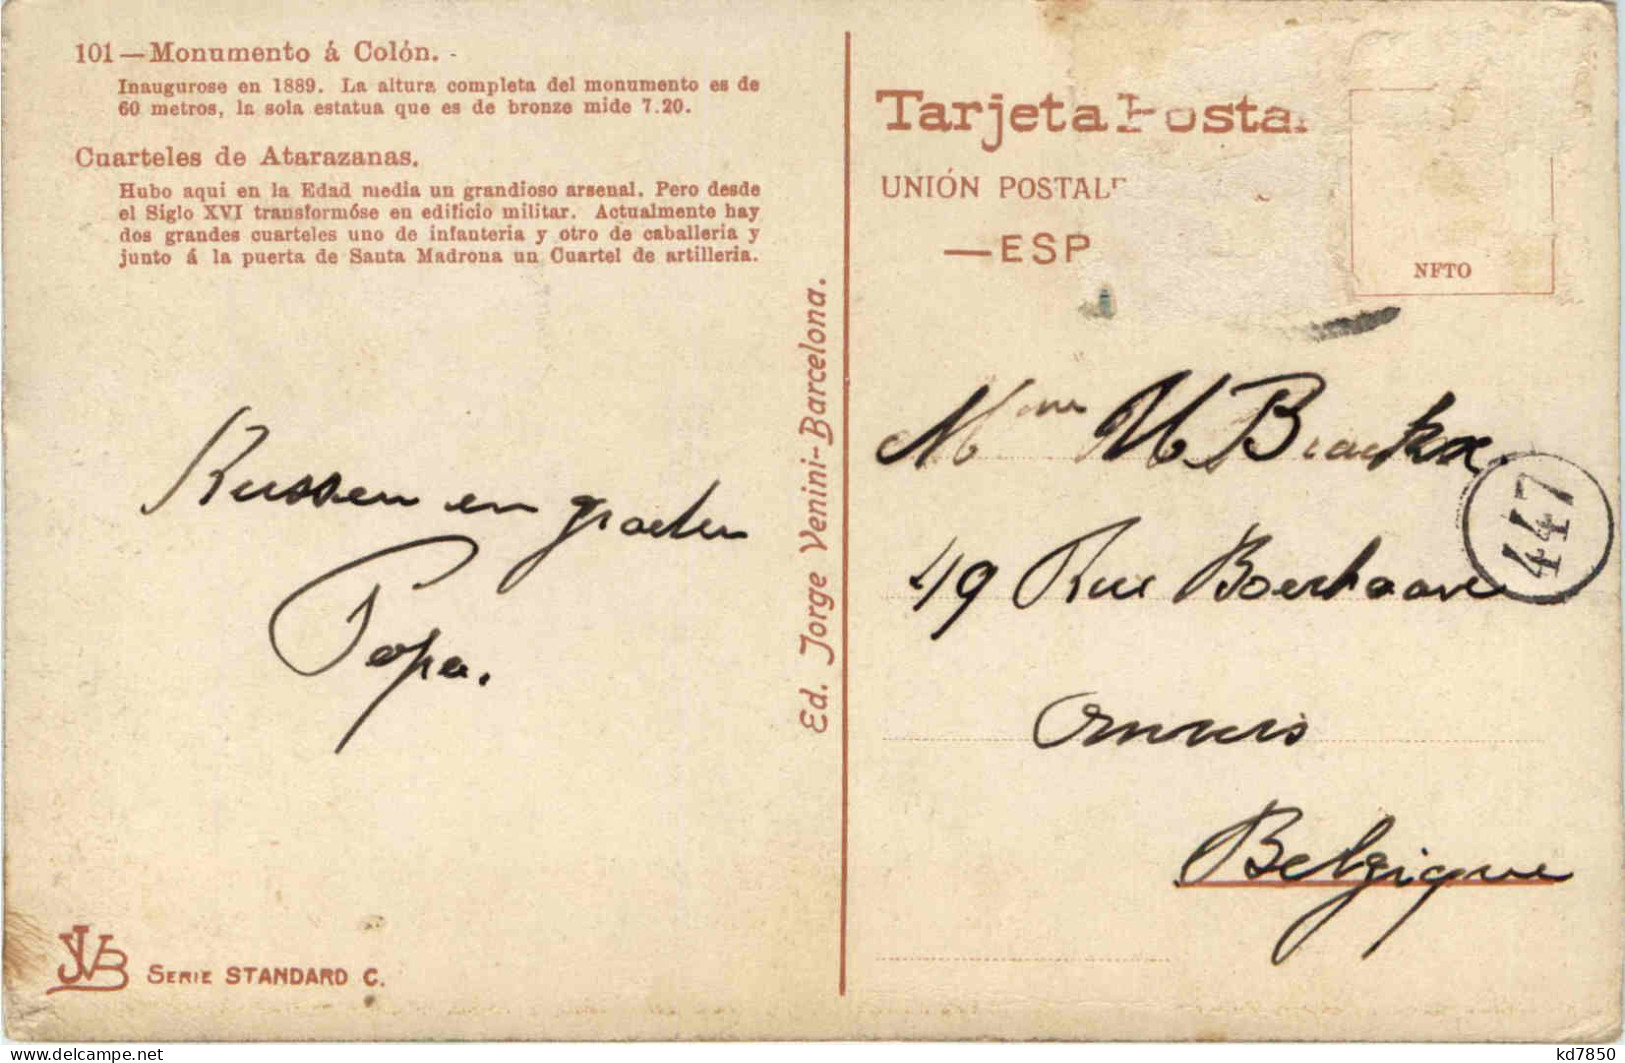 101—Monumento á Colón. -
Inaugurose en 1889. La altura completa del monumento es de
60 metros, la sola estatua que es de bronze mide 7.20.
Cuarteles de Atarazanas.
Hubo aqui en la Edad media un grandioso arsenal. Pero desde
el Siglo XVI transformóse en edificio militar. Actualmente hay
dos grandes cuarteles uno de infanteria y otro de caballeria y
junto á la puerta de Santa Madrona un Cuartel de artilleria.
Kussen en groeten
Papa.
JVB SERIE STANDARD C.
Ed. Jorge Venini-Barcelona.
Tarjeta Posta
UNIÓN POSTALE
—ESP
NFTO
Mme M Brackx.
447
49 Rue Boerhaave
Anvers
Belgique
www.delcampe.net
kd7850